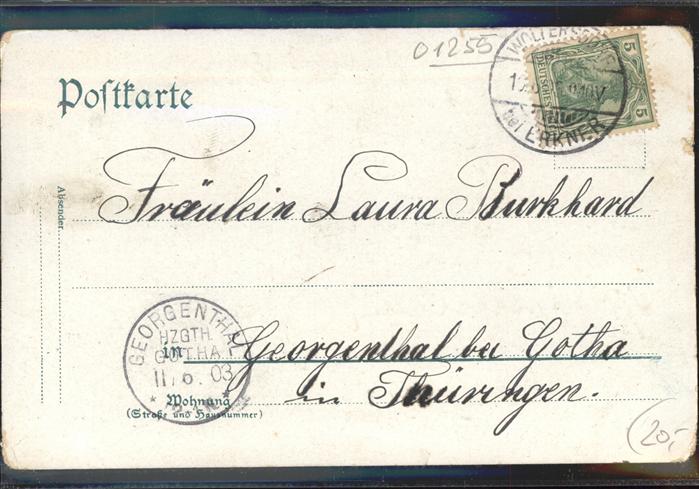 01255
WOLTERSDORF
bei ERKNER
5
5
Postkarte
Absender
Fräulein Laura Burkhard
GEORGENTHAL
HZGTH.
GOTHA
11/6. 03
in Georgenthal bei Gotha
in Thüringen.
Wohnung
(Straße und Hausnummer)
20,-